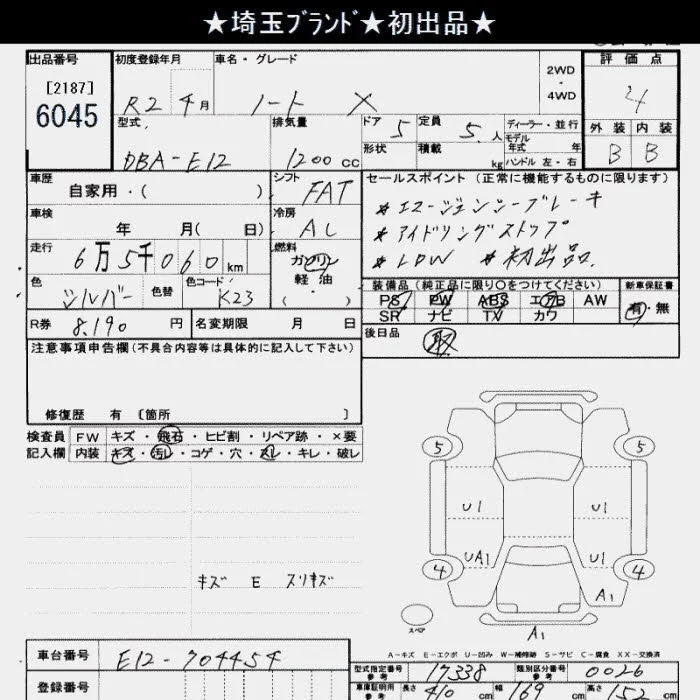 ★埼玉ブランド★初出品★
出品番号
[2187]
6045
初度登録年月
R2 年 4 月
車名・グレード
ノート X
2WD
・
4WD
評価点
4
外装 内装
B B
型式
DBA-E12
排気量
1200 cc
ドア 5
定員 5 人
形状
積載 kg
ディーラー・並行
モデル
年式 年
ハンドル 左・右
車歴
自家用・( )
シフト
FAT
車検
年 月( 日)
冷房
AC
走行
6万5千060 km
燃料
ガソリン
軽油
( ・ )
色
シルバー
色替
色コード
K23
セールスポイント (正常に機能するものに限ります)
* エマージェンシーブレーキ
* アイドリングストップ
* LDW * 初出品.
装備品(純正品に限り○をつけてください)
PS PW ABS エアB AW
SR ナビ TV カワ
新車保証書
有・無
R券 8,190 円
名変期限 月 日
後日品
取
注意事項申告欄(不具合内容等は具体的に記入して下さい)
修復歴 有 〔箇所 〕
検査員 FW キズ・飛石・ヒビ割・リペア跡・×要
記入欄 内装 キズ・汚レ・コゲ・穴・スレ・キレ・破レ
キズ E スリキズ
5 5
U1 U1
UA1 U1
4 4
A1
A1
スペア
A-キズ E-エクボ U-凹み W-補修跡 S-サビ C-腐食 XX-交換済
車台番号 E12-704454
登録番号
型式指定番号
参考
17338
類別区分番号
参考
0026
車庫証明用
参考
長さ 410 cm
幅 169 cm
高さ 152 cm